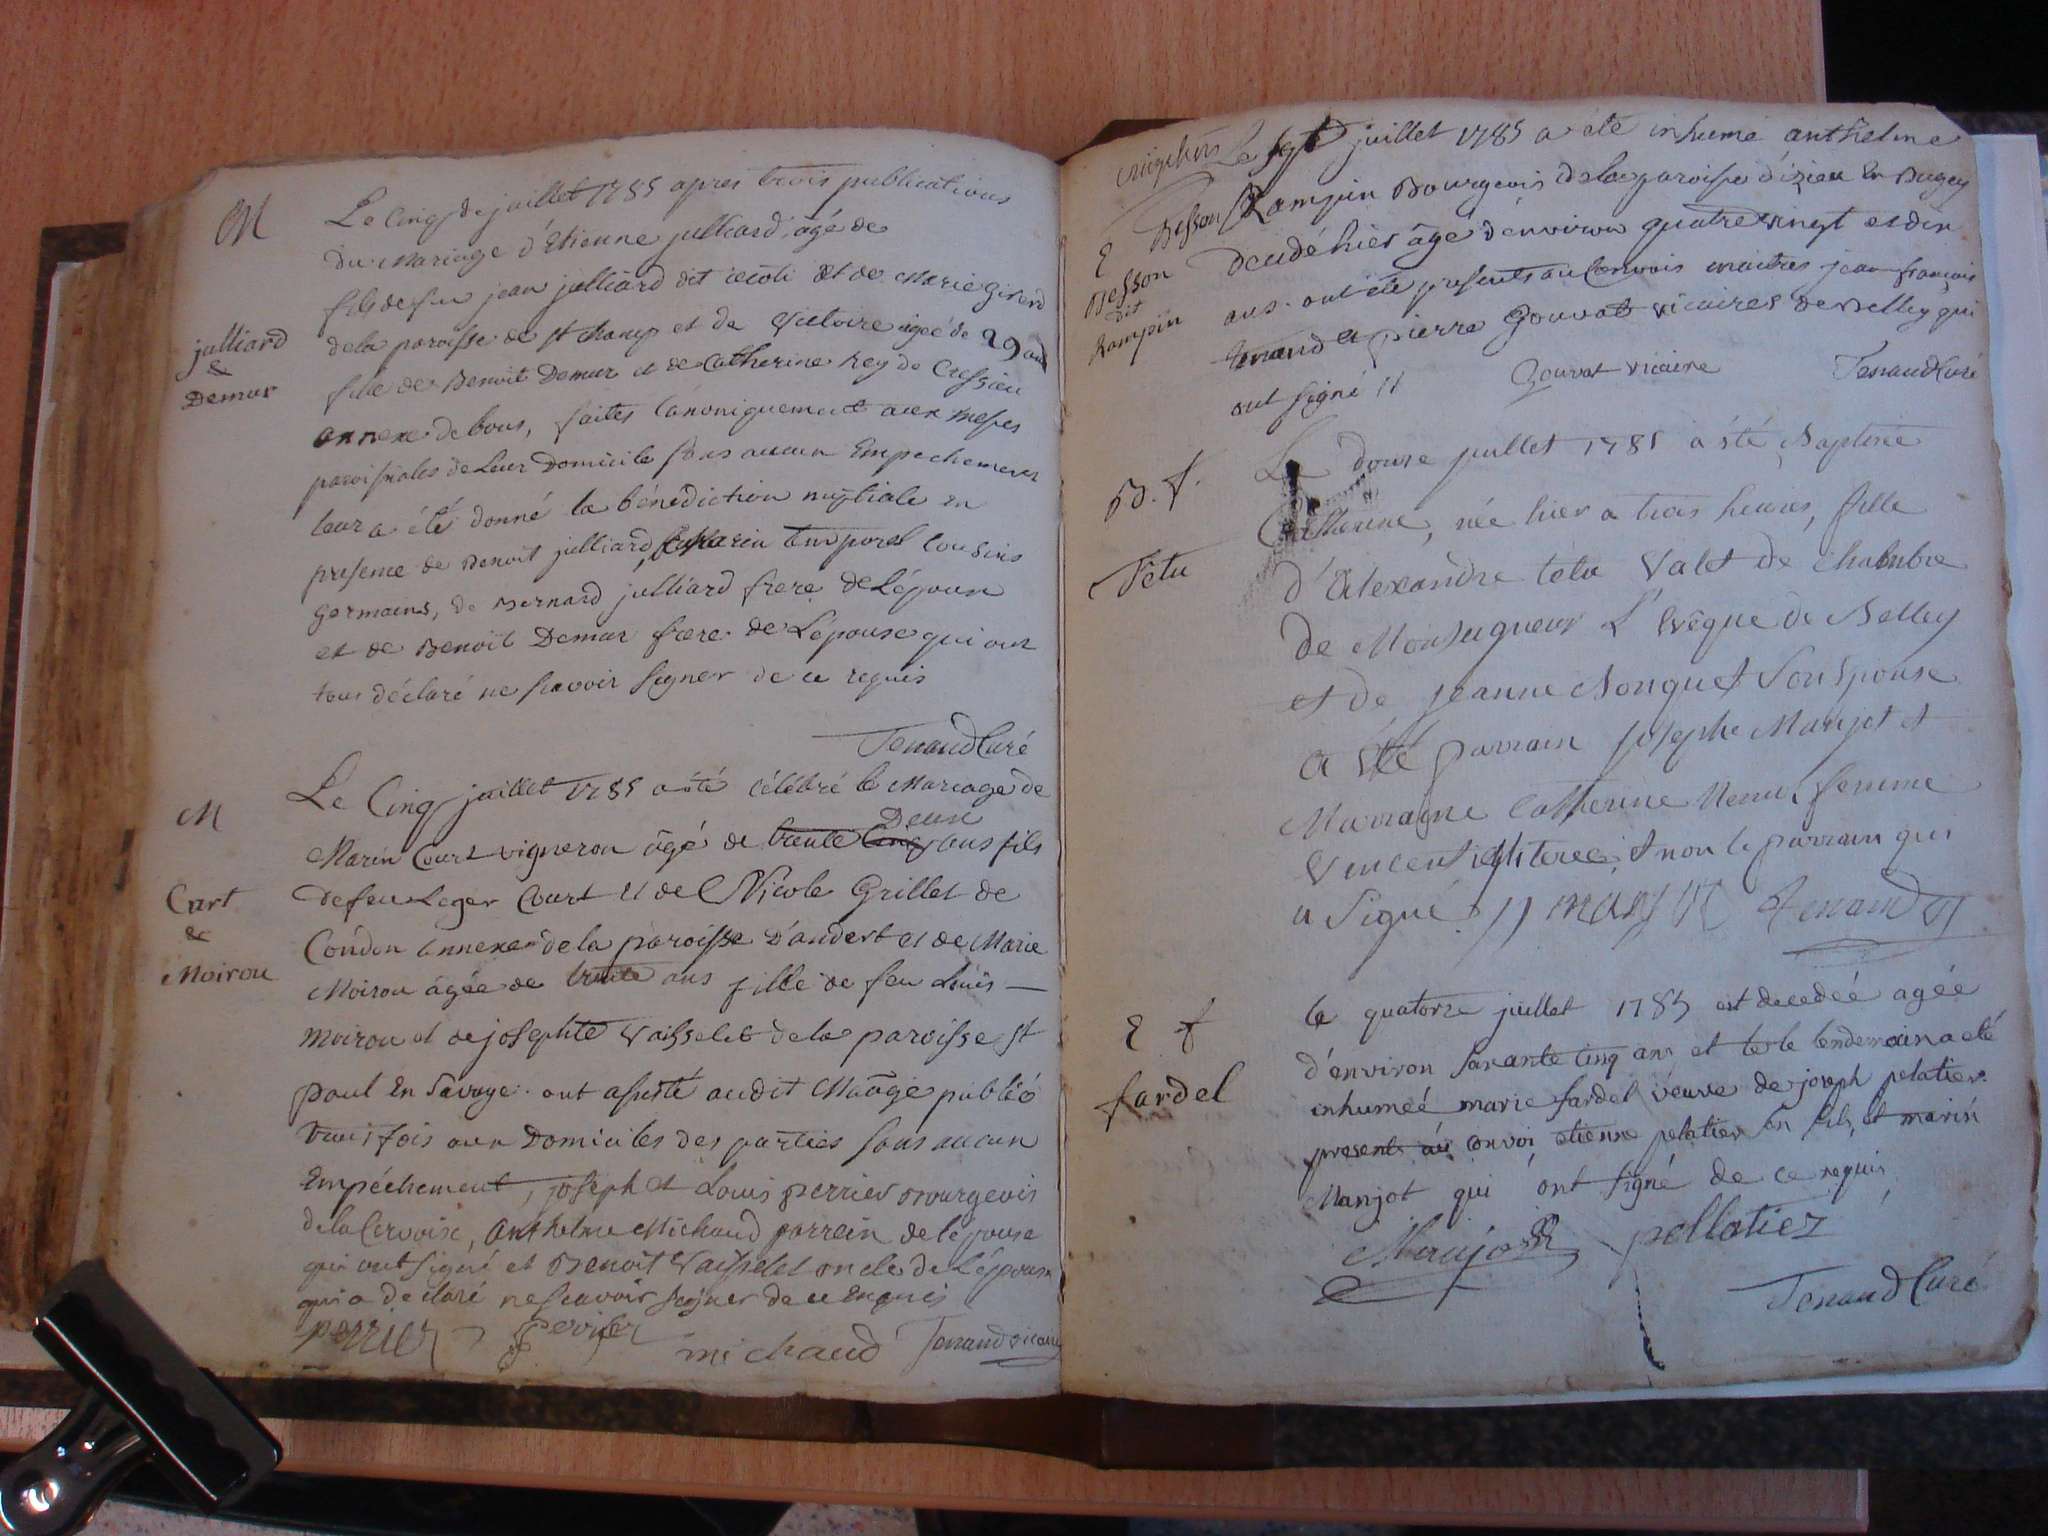 M
Le Cinq de juillet 1785 apres trois publications
du Mariage d'Etienne julliard, âgé de
fils de feu jean julliard dit et de Marie Girerd
julliard
&
Demur
de la paroisse de st champ et de Victoire âgée de 29 ans
fille de Benoit Demur et de Catherine Rey de Cressieu
annexe de bons, faites Canoniquement aux messes
paroissiales de leur Domicile sans aucun Empechement
leur a été donné la bénédiction nuptiale en
presence de Benoit julliard, Temporal Cousins
germains, de Bernard julliard frere de L'époux
et de Benoît Demur frere de L'épouse qui ont
tous déclaré ne scavoir signer de ce requis
Tenand Curé
M
Le Cinq juillet 1785 a été célébré le Mariage de
Deux
Marin Court vigneron âgé de trente Cinq ans fils
Curt
&
Moirou
de feu Leger Court et de Nicole Grillet de
Condon annexe de la paroisse D'andert et de Marie
Moirou âgée de trente ans fille de feu Louis
Moirou et de josephte Vaisselet de la paroisse st
paul En Savoye. ont assisté audit Mariage publié
trois fois aux Domiciles des parties sans aucun
Empéchement, joseph et Louis perrier Bourgeois
de la Cervoise, Anthelme Michaud parrein de l'épouse
qui ont signé et Benoit Vaisselet oncle de L'épouse
qui a declaré ne scavoir signer de ce Enquis
perrier perrier michaud Tenand vicaire
Le sept juillet 1785 a été inhumé anthelme
E
Besson
dit
Rampin
Besson Rampin Bourgeois de la paroisse d'izieu En Bugey
décédé hier âgé d'environ quatre vingt et dix
ans. ont été présents au Convois maitres jean françois
Tenand et pierre Gouvat vicaires de Belley qui
ont signé //
Gouvat vicaire Tenand Curé
B. f.
Tetu
Le douze juillet 1785 a été Baptisée
Catherine, née hier a trois heures, fille
d'Alexandre tetu Valet de Chambre
de Monseigneur L'Evêque de Belley
et de jeanne Bonquet Son Epouse
a été parrain josephe Manjot et
Marraine Catherine femme
Vincent illiterée, et non le parrain qui
a Signé // Tenand
E f
fardel
le quatorze juillet 1785 est decedeé ageé
d'environ soixante cinq ans et le lendemain a eté
inhumeé marie fardel veuve de joseph pelatier
present au convoi etienne pelatier son fils, et marin
Manjot qui ont signé de ce requis
Manjot pellatiez
Tenand Curé